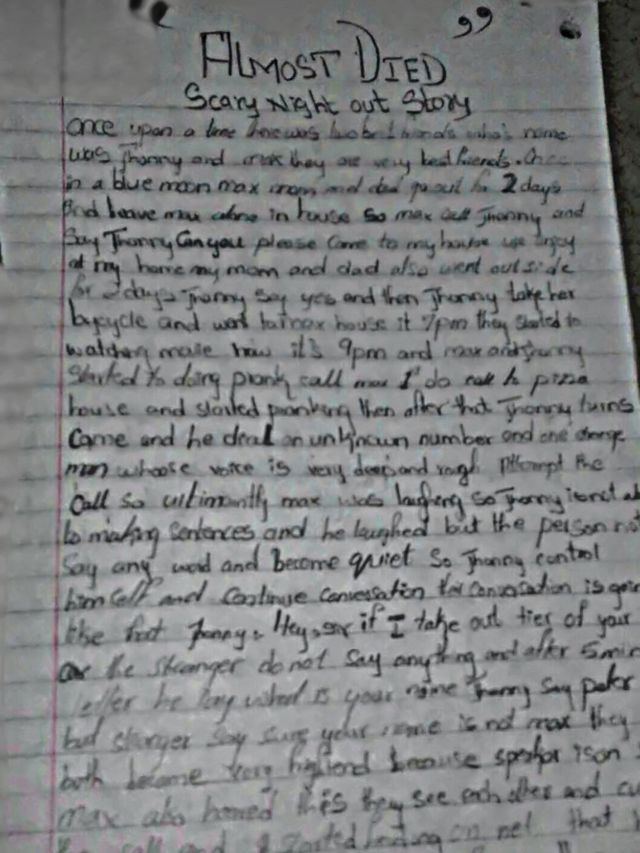 " ALMOST DIED "
Scary Night out Story
Once upon a time there was two best friends who's name
was Jhonny and max they are very best friends. Once
in a blue moon max mom and dad go out for 2 days
And leave max alone in house so max call Jhonny and
Say Jhonny Can you please come to my house we enjoy
at my home my mom and dad also went out side
for 2 days Jhonny say yes and then Jhonny take her
bycycle and went to max house it 7pm they started to
watching movie now it's 9pm and max and Jhonny
Started to doing prank call max 1st do call to pizza
house and started pranking then after that Jhonny turns
Came and he deal an unknown number and one strange
man whoose voice is very deep and rough Attempt the
Call so ultimantly max was laughing so Jhonny is not
to making sentences and he laughed but the person not
Say any word and become quiet So Jhonny control
him self and Continue Conversation the conversation is
like that Jhonny. Hey, sir if I take out tier of your
the stranger do not say anything and after 5 min
he say what is your name Jhonny say peter
but stranger say sure your name is not max they
both become very because speaker is on
max also this they see each other and
call and started finding on net that